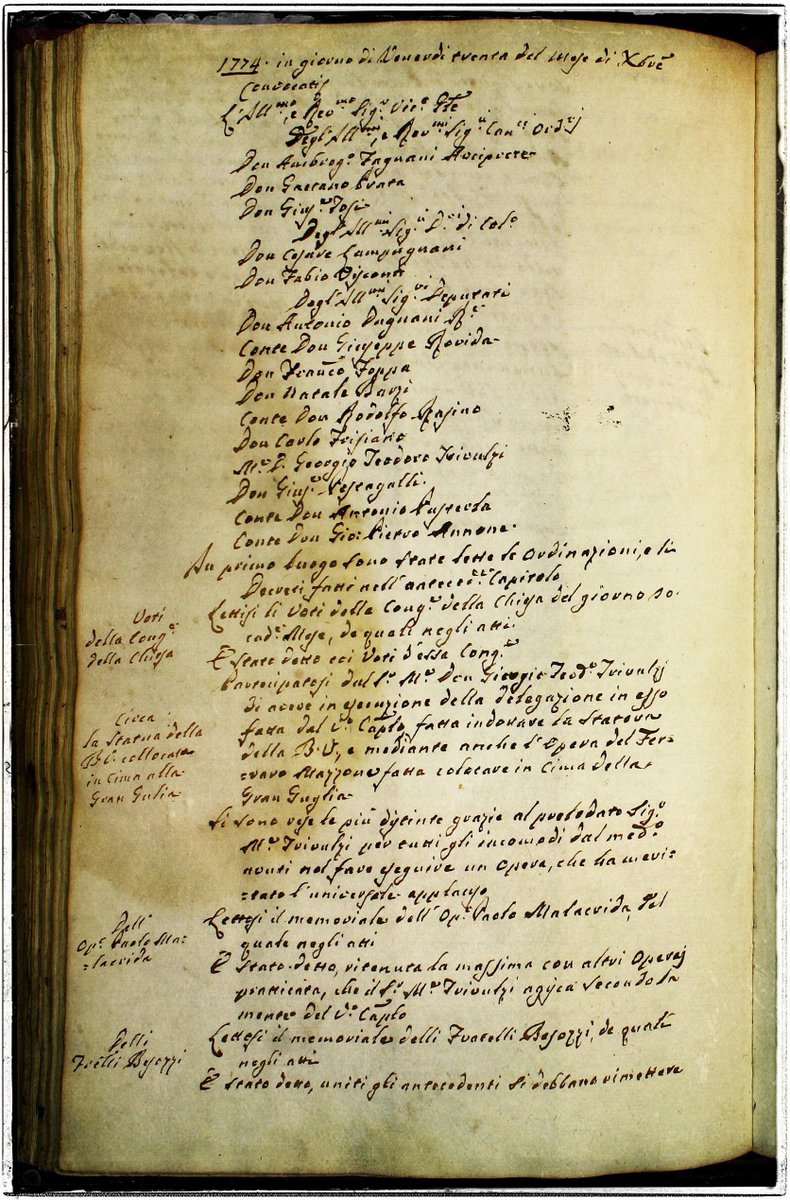 1774. in giorno di Venerdi trenta del Mese di Xbre
Convocati
L'Ill.mo, e Rev.mo Sig.r Vic.o Gle
Degl'Ill.mi, e Rev.mi Sig.ri Can.ci Ord.j
Don Ambrog.o Fagnani Arciprete
Don Gaetano Prata
Don Gius.e Tosi
Degl'Ill.mi Sig.ri D.ri di Col.o
Don Cesare Lampugnani
Don Fabio Visconti
Degl'Ill.mi Sig.ri Deputati
Don Antonio Dugnani R.e
Conte Don Giuseppe Rovida
Don Franco Foppa
Don Natale Barzi
Conte Don Rodolfo Rasino
Don Carlo Trisiano
M.e D. Georgio Teodoro Trivulzi
Don Gius.e Pestagalli
Conte Don Antonio Pusterla
Conte Don Gio: Pietro Annone
In primo luogo sono state lette le Ordinazioni, e li
Decreti fatti nell'anteced.te Capitolo
Voti
della Cong.e
della Chiesa
Lettisi li Voti della Cong.e della Chiesa del giorno 20.
cad.e Mese, de quali negli atti
È stato detto coi Voti d'essa Cong.e
Circa
la Statua della
B.V. collocata
in Cima alla
Gran Gulia
Partecipatosi dal S.r M.e Don Giorgio Teod.o Trivulzj
di avere in esecuzione della delegazione in esso
fatta dal V.o Caplo, fatta indorare la Statova
della B.V., e mediante anche l'Opera del Fer=
=raro Mazzone fatta colocare in Cima della
Gran Guglia
Si sono rese le più distinte grazie al prelodato Sig.r
M.e Trivulzi per tutti gli incomodi dal med.o
avuti nel fare eseguire un Opera, che ha meri=
=tato l'universale applauso
Dell'
Op.o Paolo Ma=
=lacrida
Lettosi il memoriale dell'Op.o Paolo Malacrida, del
quale negli atti
È stato detto, ritenuta la massima con altri Operaj
pratticata, che il S.r M.e Trivulzi agisca secondo la
mente del V.o Caplo
Delli
Frelli Besozzi
Lettosi il memoriale delli Fratelli Besozzi, de quali
negli atti
È stato detto, uniti gli antecedenti si debbano rimettere